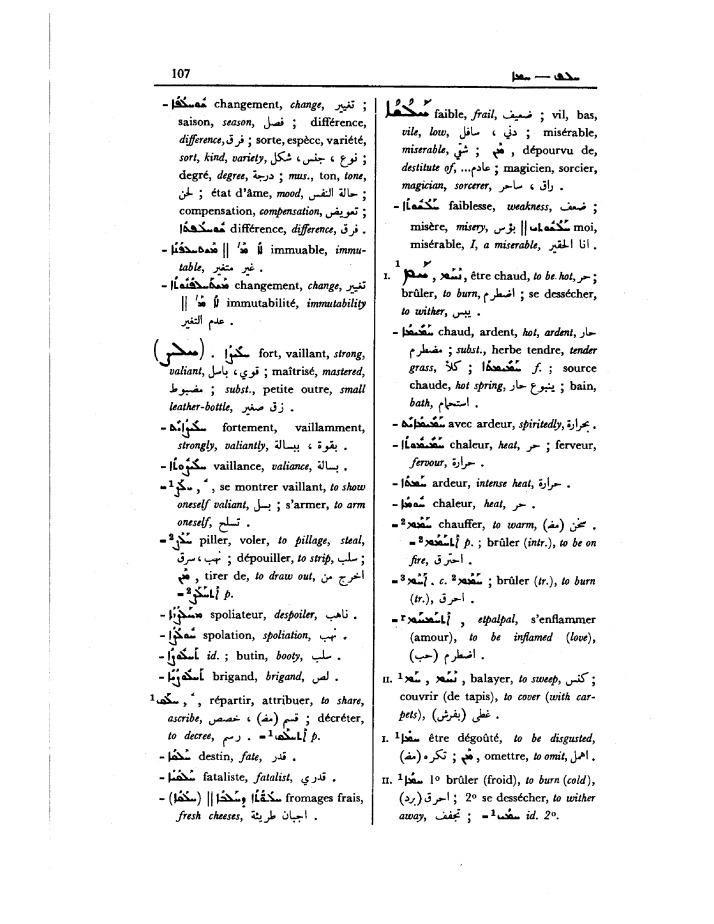 107 ܚܠܦ — ܚܡܐ
- ܫܘܚܠܦܐ changement, change, تغيير ;
saison, season, فصل ; différence,
difference, فرق ; sorte, espèce, variété,
sort, kind, variety, نوع ، جنس ، شكل ;
degré, degree, درجة ; mus., ton, tone,
لحن ; état d'âme, mood, حالة النفس ;
compensation, compensation, تعويض ;
différence, difference, فرق .
- ܡܫܬܚܠܦܢܐ || ܠܐ ܡܫ' immuable, immu-
table, غير متغير .
- ܡܫܬܚܠܦܢܘܬܐ changement, change, تغيير
|| ܠܐ ܡܫ' immutabilité, immutability
عدم التغير .
(ܚܠܨ) . ܚܠܝܨܐ fort, vaillant, strong,
valiant, قوي ، باسل ; maîtrisé, mastered,
مضبوط ; subst., petite outre, small
leather-bottle, زق صغير .
- ܚܠܝܨܐܝܬ fortement, vaillamment,
strongly, valiantly, بقوة ، ببسالة .
- ܚܠܝܨܘܬܐ vaillance, valiance, بسالة .
- ¹ܚܠܨ , se montrer vaillant, to show
oneself valiant, بسل ; s'armer, to arm
oneself, تسلح .
- ²ܚܠܨ piller, voler, to pillage, steal,
نهب ، سرق ; dépouiller, to strip, سلب ;
ܡܢ , tirer de, to draw out, اخرج من
- ²ܐܬܚܠܨ p.
- ܡܚܠܨܢܐ spoliateur, despoiler, ناهب .
- ܚܘܠܨܐ spolation, spoliation, نهب .
- id. ; butin, booty, سلب .
- brigand, brigand, لص .
¹ܚܠܩ , répartir, attribuer, to share,
ascribe, قسم (مف) ، خصص ; décréter,
to decree, رسم . - ¹ܐܬܚܠܩ p.
- ܚܠܩܐ destin, fate, قدر .
- fataliste, fatalist, قدري .
- fromages frais,
fresh cheeses, اجبان طريئة .
ܚܠܫܐ faible, frail, ضعيف ; vil, bas,
vile, low, دني ، سافل ; misérable,
miserable, شقي ; ܡܢ , dépourvu de,
destitute of, عادم... ; magicien, sorcier,
magician, sorcerer, راق ، ساحر .
- ܚܠܫܘܬܐ faiblesse, weakness, ضعف ;
misère, misery, بؤس || ܚܠܫܘܬܝ moi,
misérable, I, a miserable, انا الحقير .
I. ¹ܚܡ , ܢܚܡ , être chaud, to be hot, حر ;
brûler, to burn, اضطرم ; se dessécher,
to wither, يبس .
- ܚܡܝܡܐ chaud, ardent, hot, ardent, حار
مضطرم ; subst., herbe tendre, tender
grass, كلأ ; ܚܡܝܡܬܐ f. ; source
chaude, hot spring, ينبوع حار ; bain,
bath, استحمام .
- ܚܡܝܡܐܝܬ avec ardeur, spiritedly, بحرارة .
- ܚܡܝܡܘܬܐ chaleur, heat, حر ; ferveur,
fervour, حرارة .
- ܚܡܬܐ ardeur, intense heat, حرارة .
- ܚܘܡܐ chaleur, heat, حر .
- ²ܚܡܡ chauffer, to warm, سخن (مف) .
- ²ܐܬܚܡܡ p. ; brûler (intr.), to be on
fire, احترق .
- ³ܐܚܡ . c. ²ܚܡܡ ; brûler (tr.), to burn
(tr.), احرق .
- , etpalpal, s'enflammer
(amour), to be inflamed (love),
اضطرم (حب) .
II. ¹ܚܡ , ܢܚܡ , balayer, to sweep, كنس ;
couvrir (de tapis), to cover (with car-
pets), غطى (بفرش) .
I. ¹ܚܡܐ être dégoûté, to be disgusted,
تكره (مف) ; ܡܢ , omettre, to omit, اهمل .
II. ¹ܚܡܐ 1º brûler (froid), to burn (cold),
احرق (برد) ; 2º se dessécher, to wither
away, تجفف ; - ¹ id. 2º.